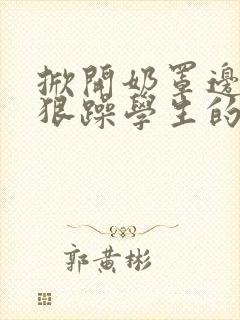 掀開奶罩邊
狠躁學生的
郭黄彬